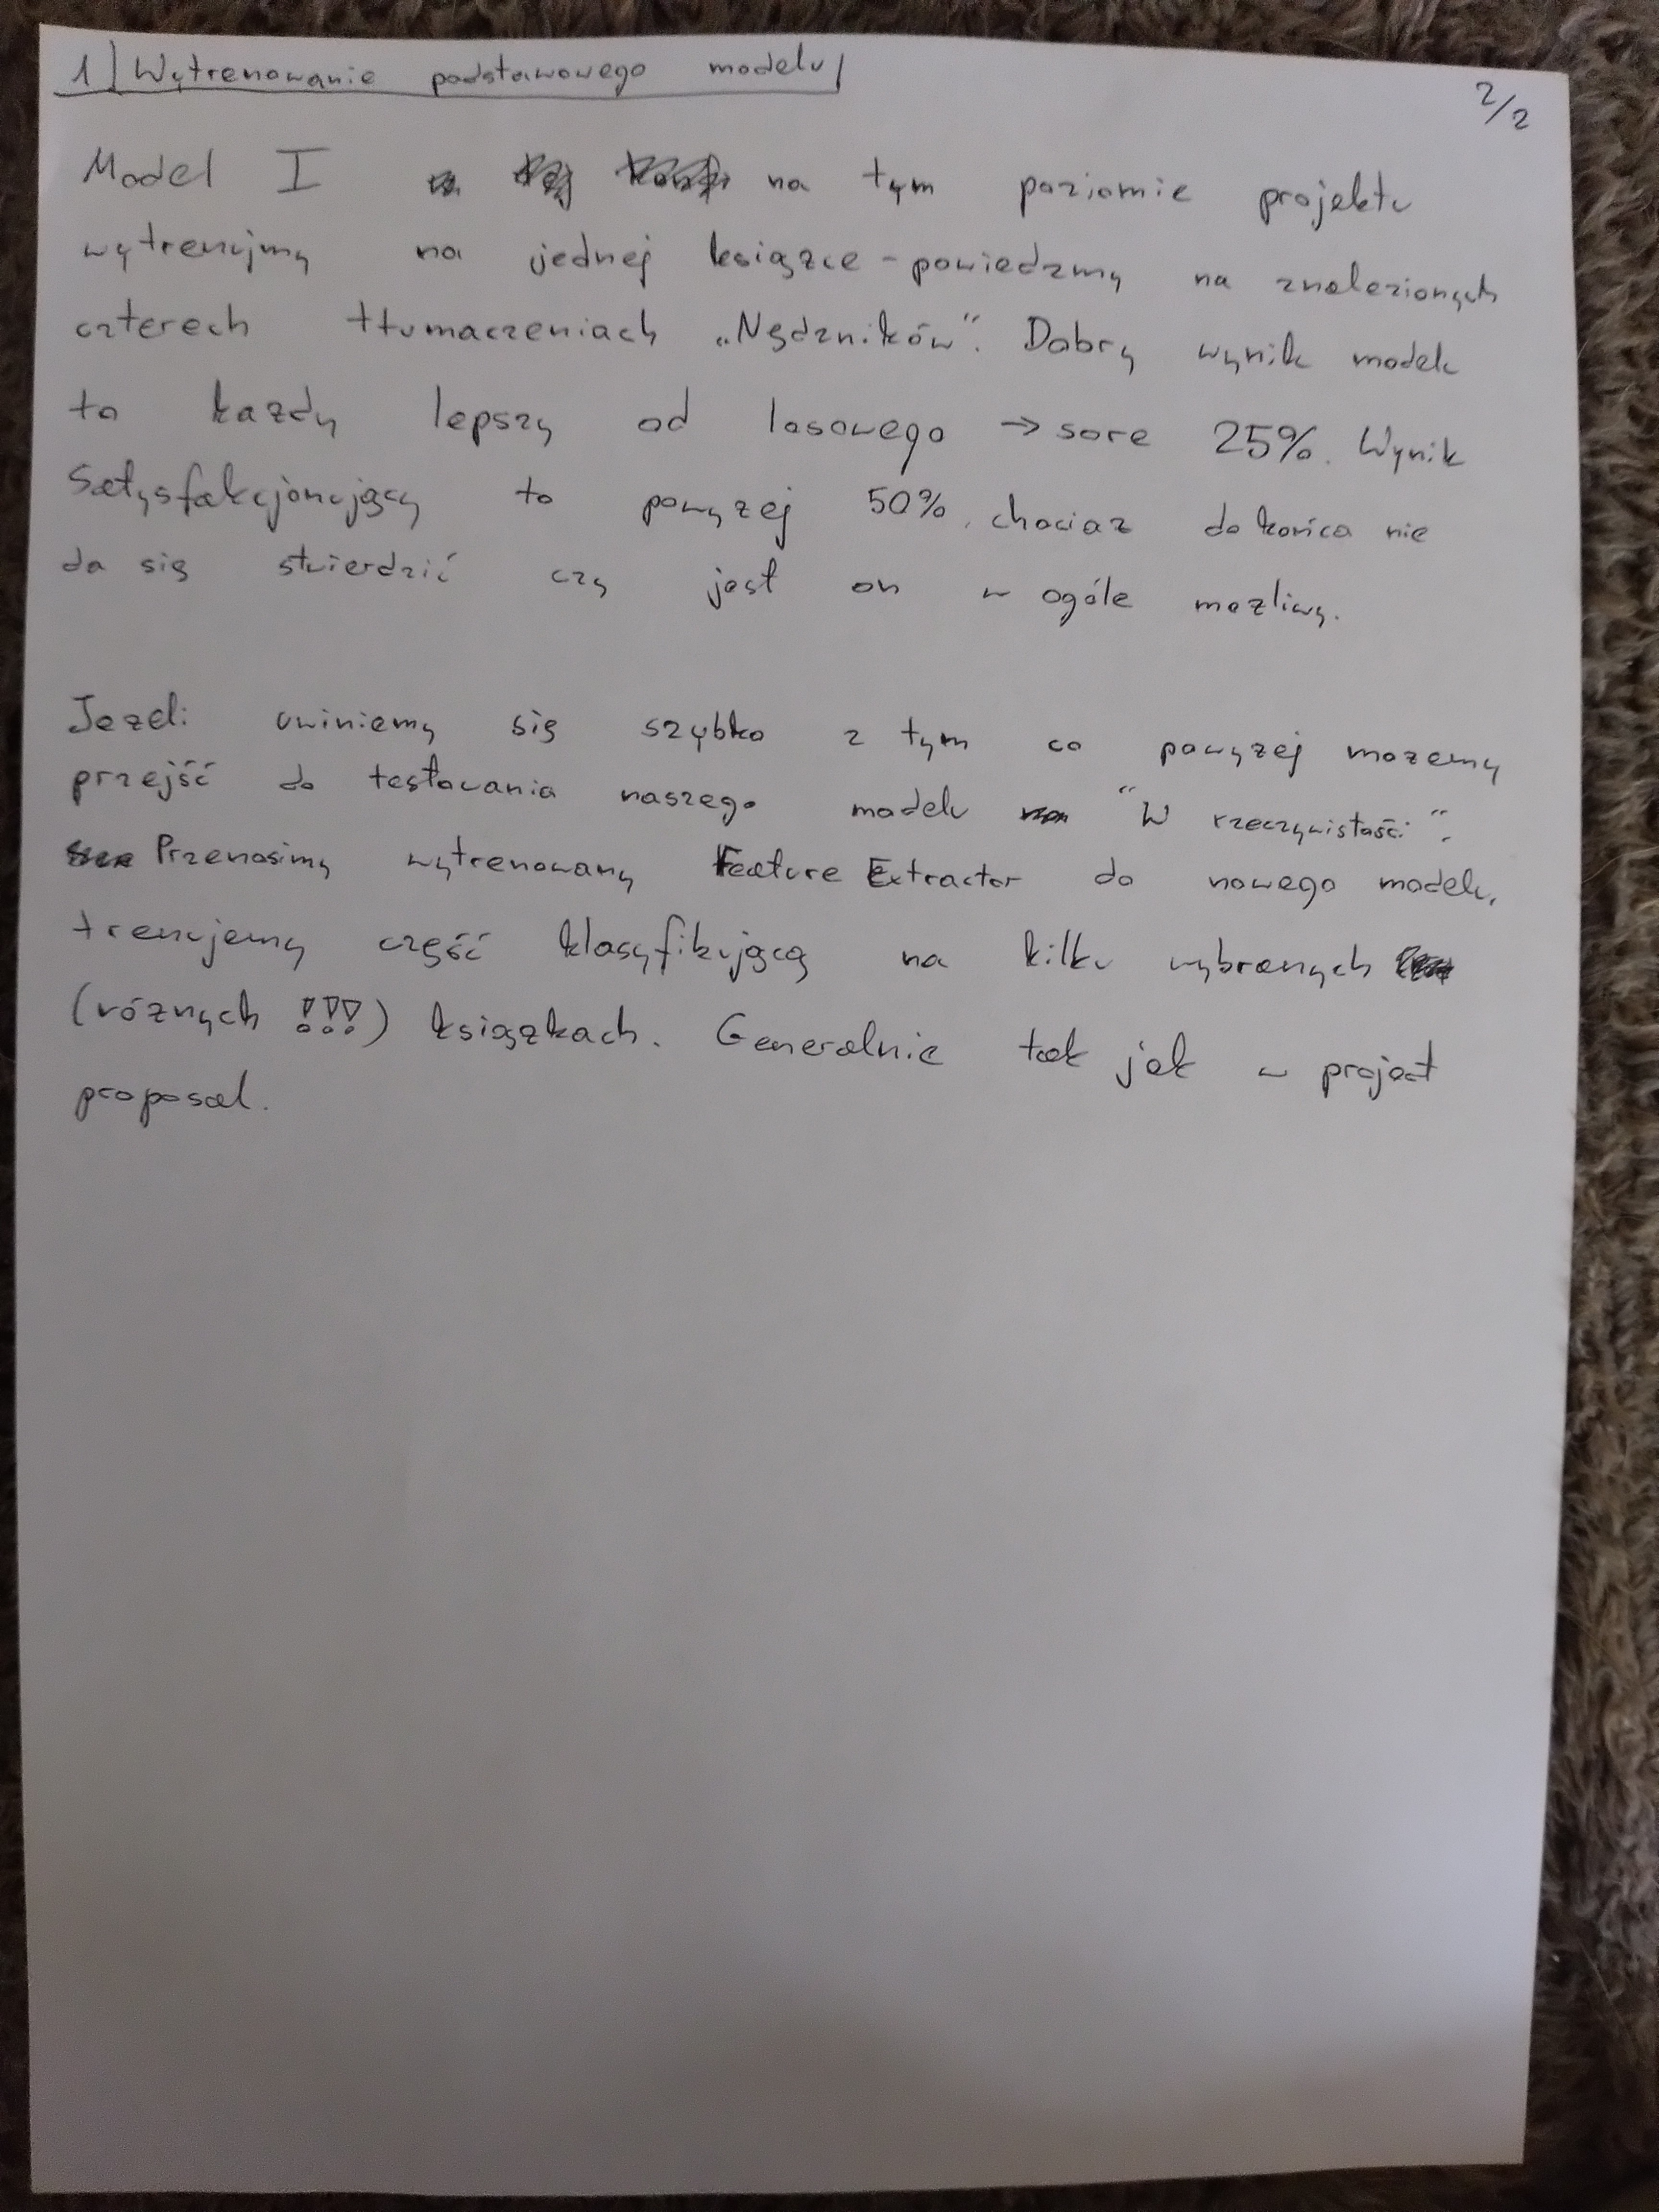 1) Wytrenowanie podstawowego modelu
2/2
Model I na tym poziomie projektu
wytrenujmy na jednej książce - powiedzmy na znalezionych
czterech tłumaczeniach „Nędzników”. Dobry wynik modelu
to każdy lepszy od losowego → sore 25%. Wynik
satysfakcjonujący to powyżej 50%, chociaż do końca nie
da się stwierdzić czy jest on w ogóle możliwy.
Jeżeli uwiniemy się szybko z tym co powyżej możemy
przejść do testowania naszego modelu "W rzeczywistości".
Przenosimy wytrenowany Feature Extractor do nowego modelu,
trenujemy część klasyfikującą na kilku wybranych
(różnych !!!) książkach. Generalnie tak jak w project
proposal.